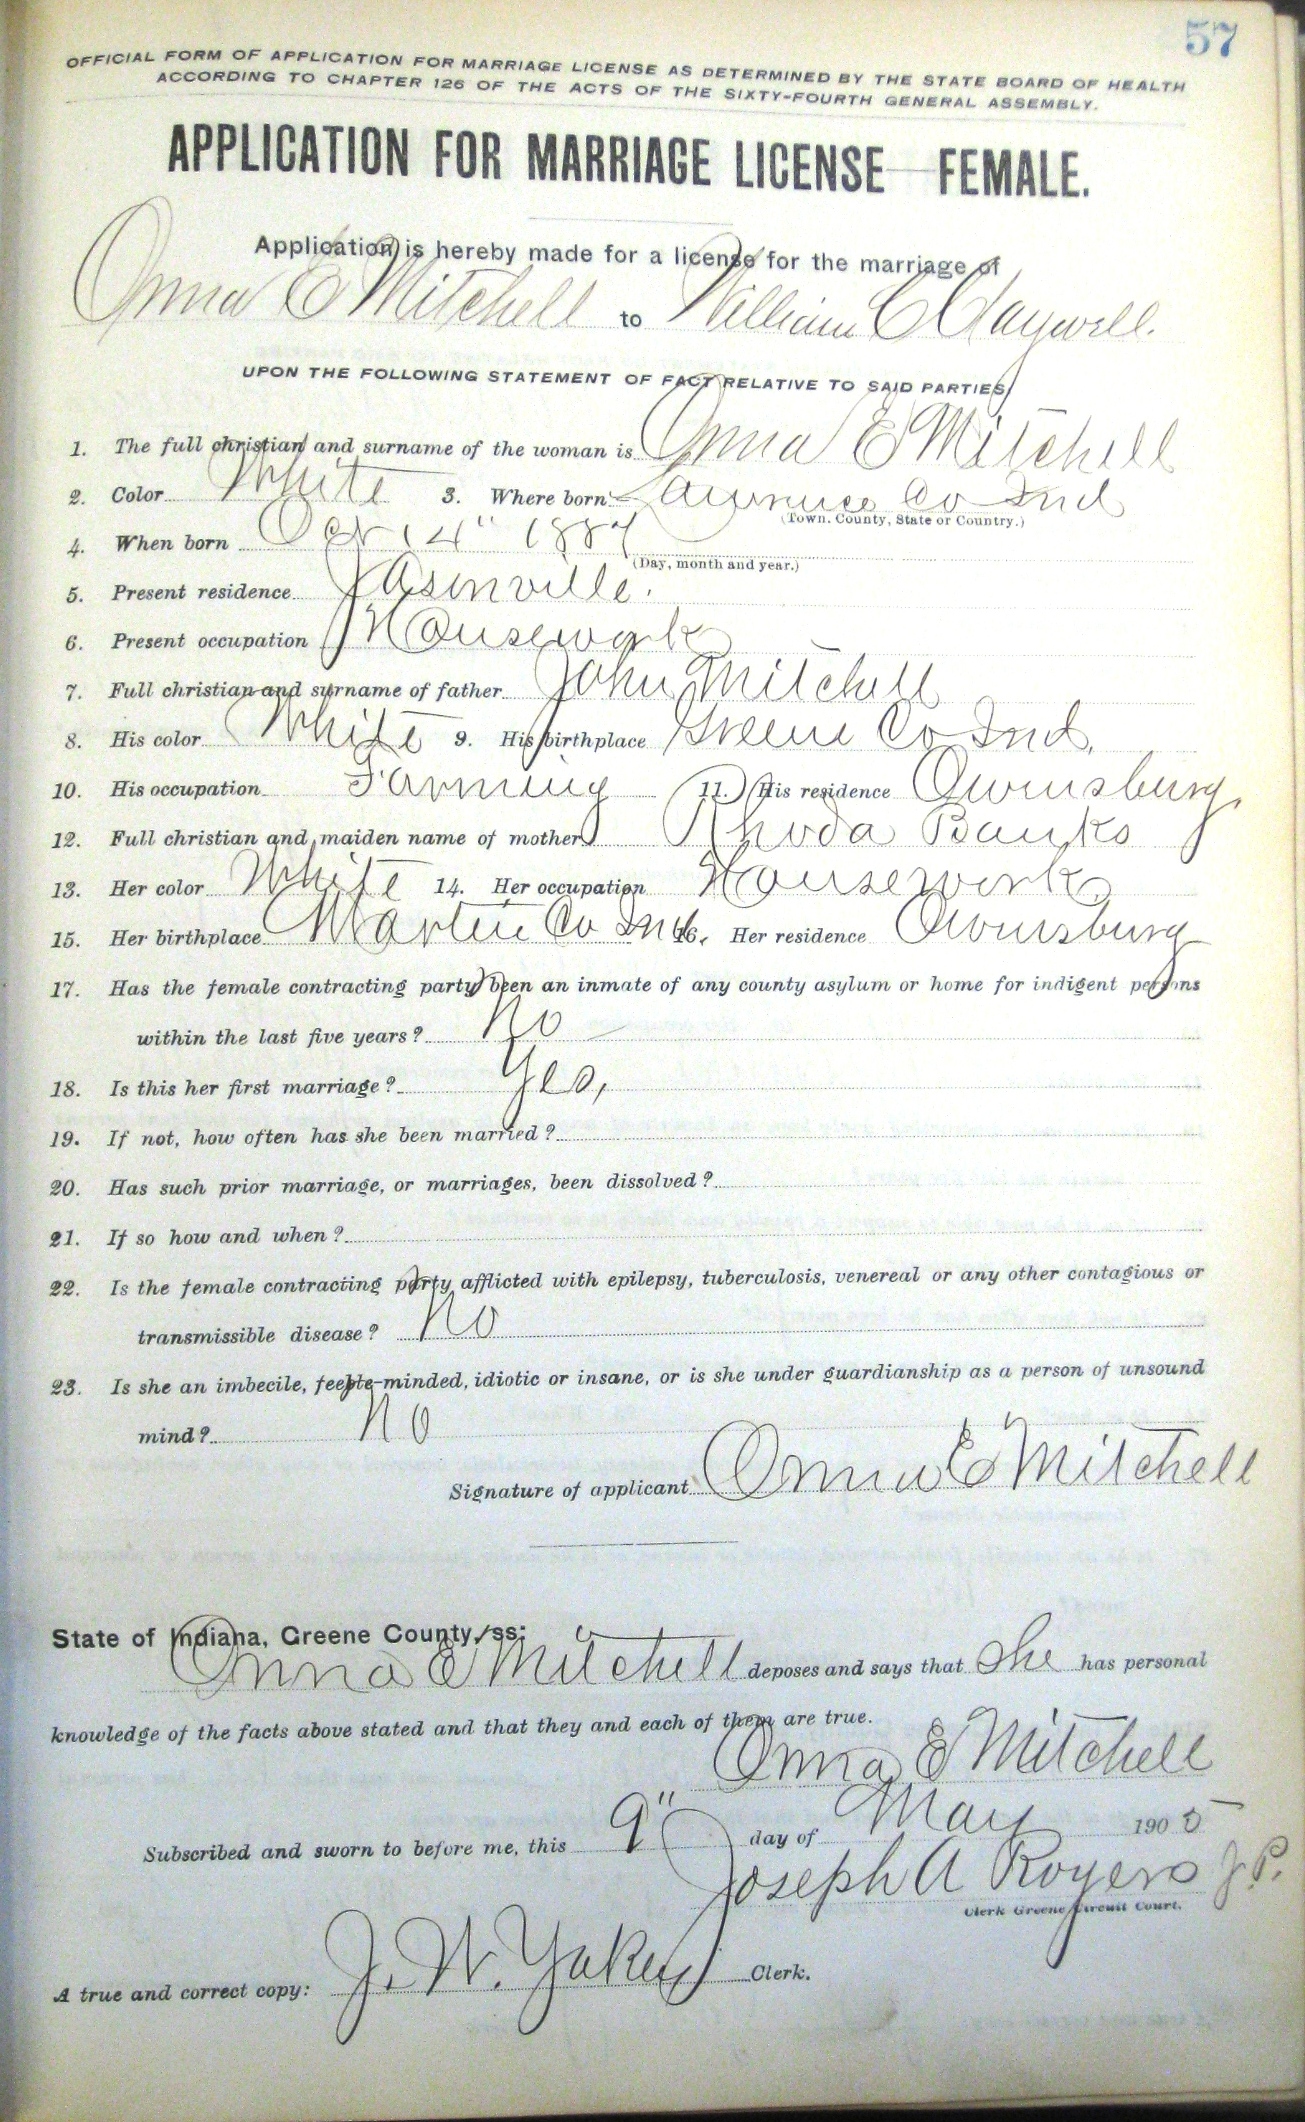 57
OFFICIAL FORM OF APPLICATION FOR MARRIAGE LICENSE AS DETERMINED BY THE STATE BOARD OF HEALTH
ACCORDING TO CHAPTER 126 OF THE ACTS OF THE SIXTY-FOURTH GENERAL ASSEMBLY.
APPLICATION FOR MARRIAGE LICENSE FEMALE.
Application is hereby made for a license for the marriage of
Anna E Mitchell to William C Claywell.
UPON THE FOLLOWING STATEMENT OF FACT RELATIVE TO SAID PARTIES
1. The full christian and surname of the woman is Anna E Mitchell
2. Color White 3. Where born Lawrence Co Ind
(Town, County, State or Country.)
4. When born 14" 1887
(Day, month and year.)
5. Present residence Jasonville.
6. Present occupation Housework
7. Full christian and surname of father John Mitchell
8. His color White 9. His birthplace Greene Co Ind.
10. His occupation Farming 11. His residence Owensburg,
12. Full christian and maiden name of mother Rhoda Banks
13. Her color White 14. Her occupation Housework
15. Her birthplace Martin Co Ind. 16. Her residence Owensburg
17. Has the female contracting party been an inmate of any county asylum or home for indigent persons
within the last five years? No
18. Is this her first marriage? Yes,
19. If not, how often has she been married?
20. Has such prior marriage, or marriages, been dissolved?
21. If so how and when?
22. Is the female contracting party afflicted with epilepsy, tuberculosis, venereal or any other contagious or
transmissible disease? No
23. Is she an imbecile, feeble-minded, idiotic or insane, or is she under guardianship as a person of unsound
mind? No
Signature of applicant Anna E Mitchell
State of Indiana, Greene County, ss:
Anna E Mitchell deposes and says that She has personal
knowledge of the facts above stated and that they and each of them are true.
Anna E Mitchell
Subscribed and sworn to before me, this 9" day of May 1905
Joseph A Rogers J.P.
Clerk Greene Circuit Court.
A true and correct copy: J. W. Yakey Clerk.